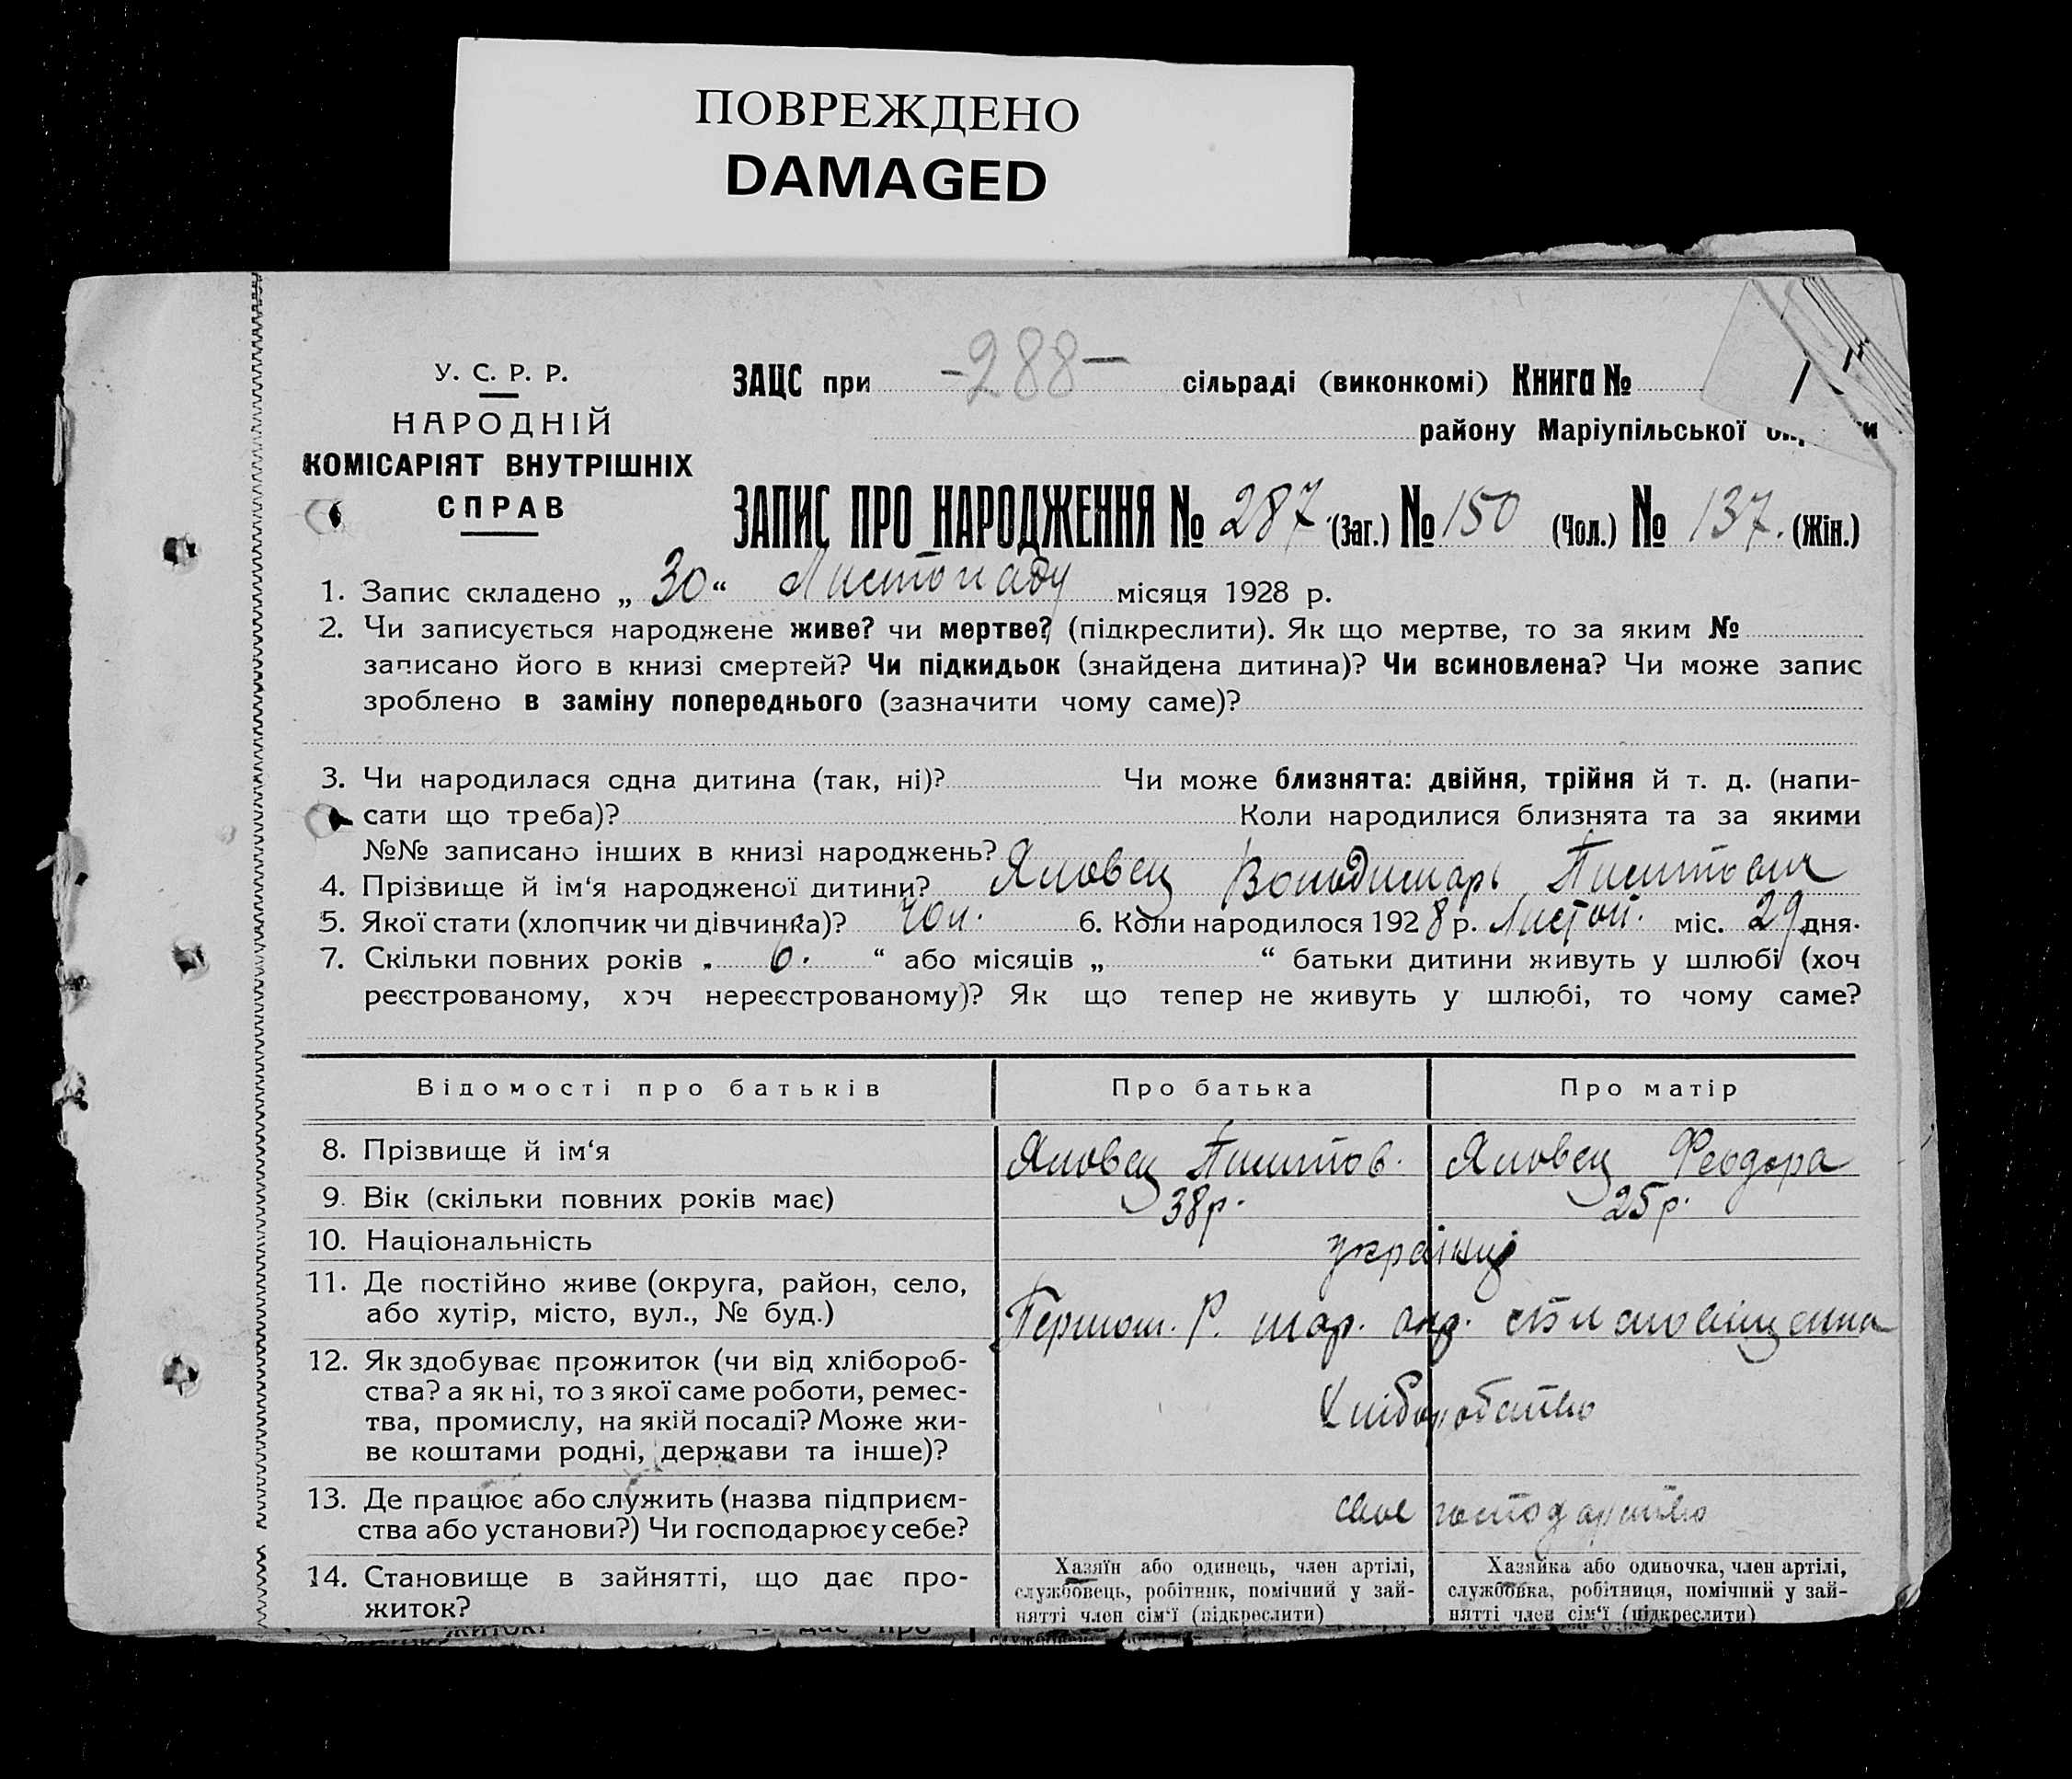 ПОВРЕЖДЕНО
DAMAGED
У. С. Р. Р.
НАРОДНІЙ
КОМІСАРІЯТ ВНУТРІШНІХ
СПРАВ
ЗАЦС при -288- сільраді (виконкомі) Книга №
району Маріупільської
ЗАПИС ПРО НАРОДЖЕННЯ № 287 (Заг.) № 150 (Чол.) № 137. (Жін.)
1. Запис складено „ 30 “ Листопаду місяця 1928 р.
2. Чи записується народжене живе? чи мертве? (підкреслити). Як що мертве, то за яким №
записано його в книзі смертей? Чи підкидьок (знайдена дитина)? Чи всиновлена? Чи може запис
зроблено в заміну попереднього (зазначити чому саме)?
3. Чи народилася одна дитина (так, ні)? Чи може близнята: двійня, трійня й т. д. (напи-
сати що треба)? Коли народилися близнята та за якими
№№ записано інших в книзі народжень?
4. Прізвище й ім‘я народженої дитини? Яловец
5. Якої стати (хлопчик чи дівчинка)? чол. 6. Коли народилося 1928 р. Листоп. міс. 29 дня.
7. Скільки повних років „ 6. “ або місяців „ “ батьки дитини живуть у шлюбі (хоч
реєстрованому, хоч нереєстрованому)? Як що тепер не живуть у шлюбі, то чому саме?
Відомості про батьків Про батька Про матір
8. Прізвище й ім‘я Яловец Яловец Феодора
9. Вік (скільки повних років має) 38р. 25р.
10. Національність українці
11. Де постійно живе (округа, район, село,
або хутір, місто, вул., № буд.) Р. мар. окр.
12. Як здобуває прожиток (чи від хлібороб-
ства? а як ні, то з якої саме роботи, ремес-
тва, промислу, на якій посаді? Може жи-
ве коштами родні, держави та інше)? Хліборобство
13. Де працює або служить (назва підприєм-
ства або установи?) Чи господарює у себе? своє господарство
14. Становище в зайнятті, що дає про-
житок?
Хазяїн або одинець, член артілі,
службовець, робітник, помічний у зай-
нятті член сім‘ї (підкреслити)
Хазяйка або одиночка, член артілі,
службовка, робітниця, помічний у зай-
нятті член сім‘ї (підкреслити)